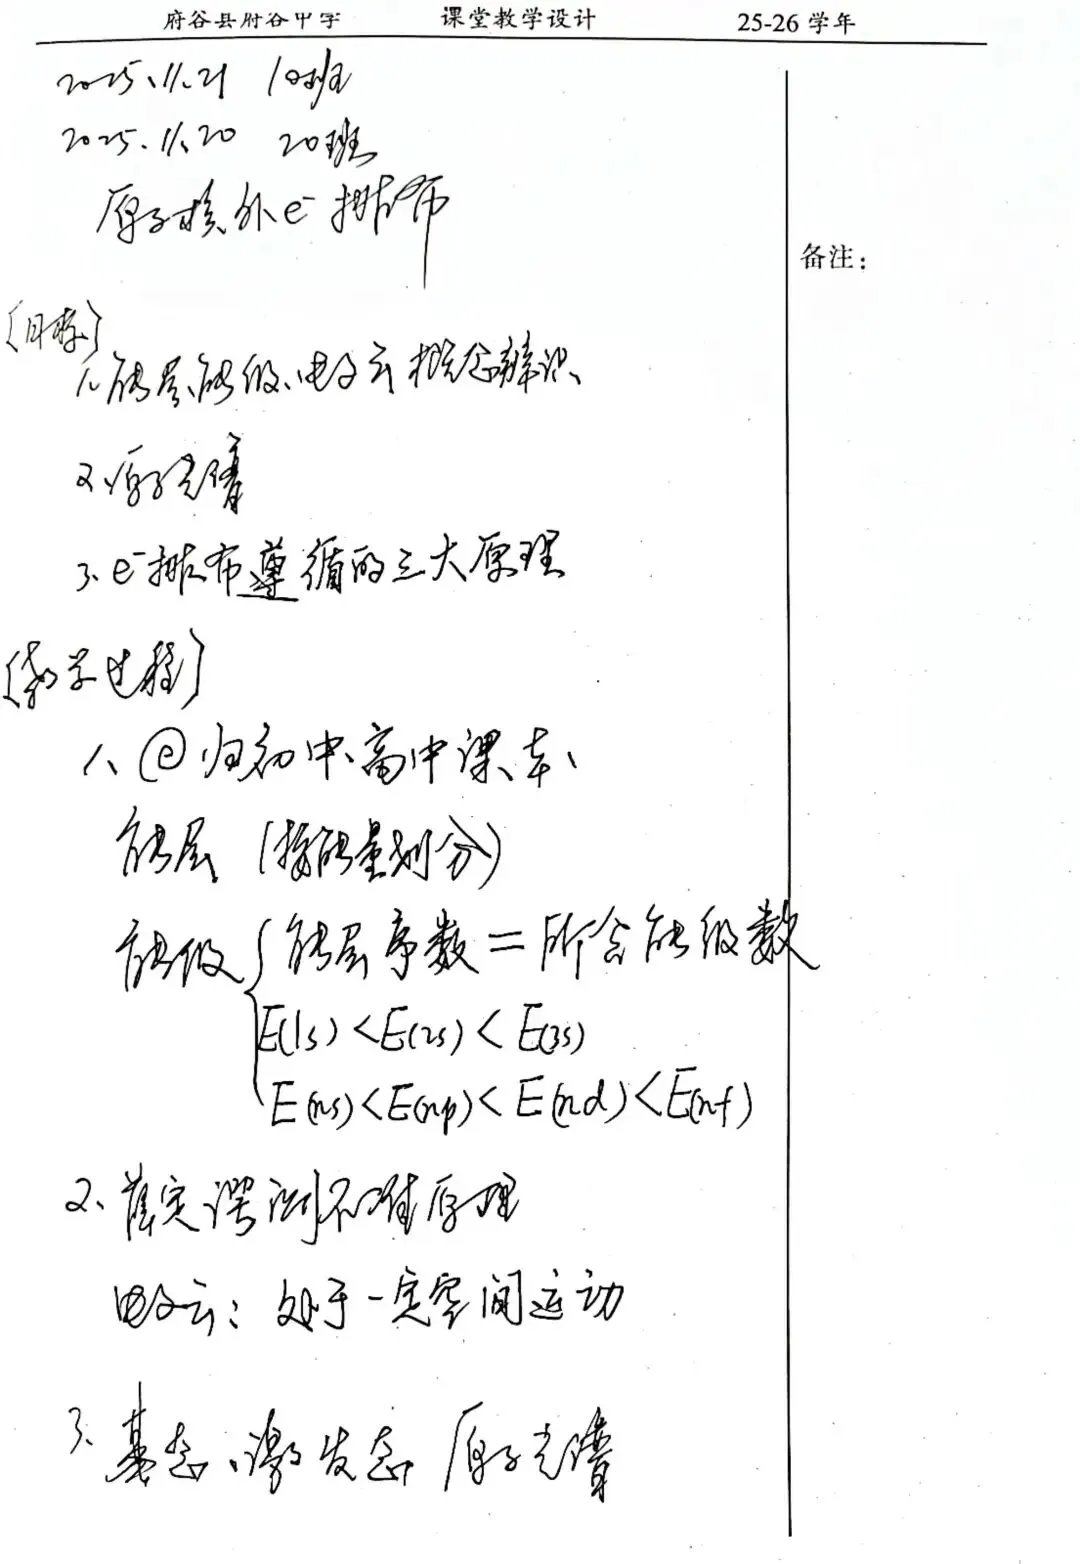 府谷县府谷中学 课堂教学设计 25-26 学年
2025.11.21 10班
2025.11.20 20班
原子核外e⁻排布
备注：
[目标]
1、能层、能级、电子云概念辨识
2、原子光谱
3、e⁻排布遵循的三大原理
[教学过程]
1、回归初中、高中课本、
能层 (按能量划分)
能级 { 能层序数 = 所含能级数
E(1s) < E(2s) < E(3s)
E(ns) < E(np) < E(nd) < E(nf)
2、薛定谔 测不准原理
电子云：处于一定空间运动
3、基态、激发态 原子光谱